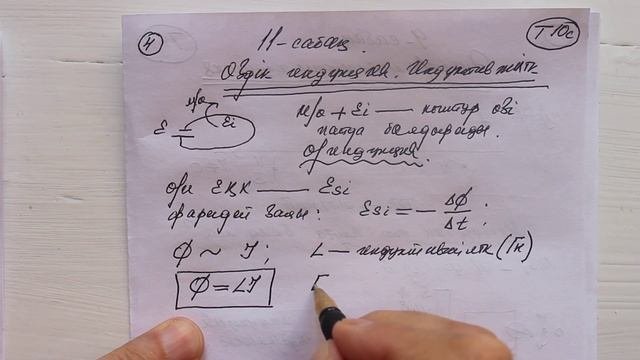 4
11-сабақ.
ТЮс
Өздік индукция. Индуктивтілік
м/ө
Ei
E
м/ө + Ei — контур өзі
пайда болдырады.
Өзиндукция.
өзи ЕҚК — Esi
Фарадей заңы: Esi = - ΔФ/Δt ;
Ф ~ I ; L — индуктивтілік (Гн)
Ф = LI